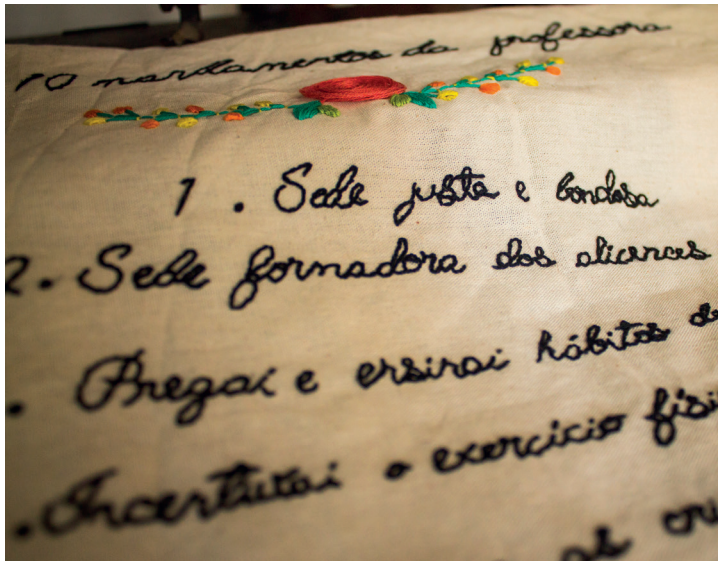 10 mandamentos da professora
1. Sede justa e bondosa
2. Sede formadora dos alicerces
. Pregai e ensinai hábitos de
. Incentivai o exercício físi
as cri